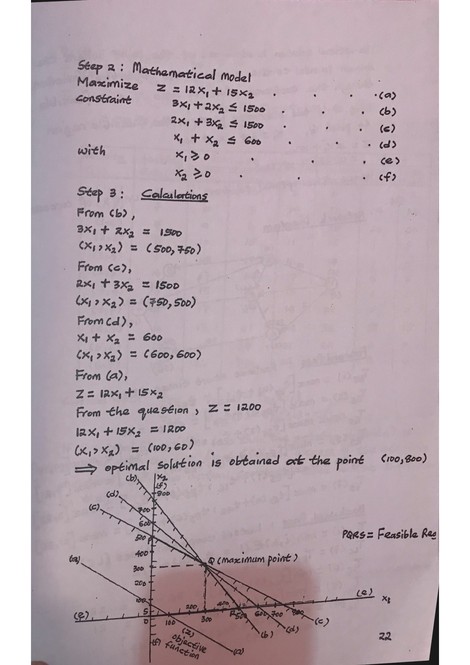 Step 2 : Mathematical model
Maximize Z = 12x₁ + 15x₂ . . . . (a)
constraint 3x₁ + 2x₂ ≤ 1500 . . . (b)
2x₁ + 3x₂ ≤ 1500 . . . (c)
x₁ + x₂ ≤ 600 . . . (d)
with x₁ ≥ 0 . . . (e)
x₂ ≥ 0 . . . . (f)
Step 3 : Calculations
From (b),
3x₁ + 2x₂ = 1500
(x₁, x₂) = (500, 750)
From (c),
2x₁ + 3x₂ = 1500
(x₁, x₂) = (750, 500)
From (d),
x₁ + x₂ = 600
(x₁, x₂) = (600, 600)
From (a),
Z = 12x₁ + 15x₂
From the question, Z = 1200
12x₁ + 15x₂ = 1200
(x₁, x₂) = (100, 60)
⟹ optimal solution is obtained at the point (100, 800)
(b) x₂
(f)
(d) 800
(c) 700
600
500
400
PQRS = Feasible Reg
Q (maximum point)
300
200
(a)
100
(e) x₁
(e) S
0 100 200 300 400 R 500 600 700 800
(b) (d) (c)
(z)
objective
(f) function
(a)
22